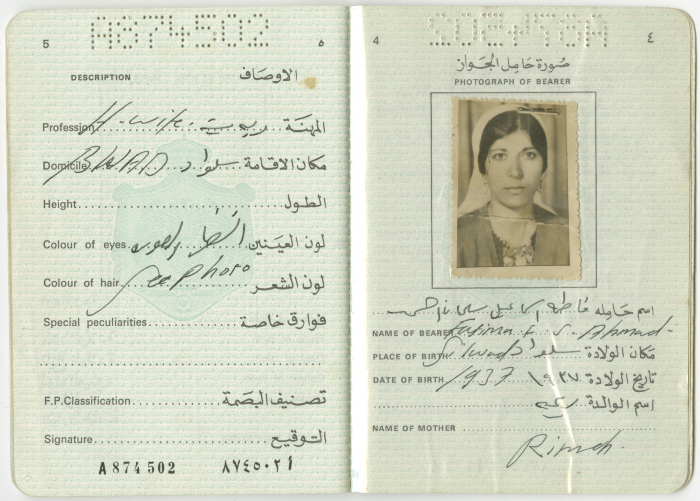 A874502
5 ٥
DESCRIPTION الاوصاف
Profession H-wife. ربة بيت المهنة
Domicile سلواد مكان الاقامة
Height الطول
Colour of eyes لون العينين
Colour of hair See Photo لون الشعر
Special peculiarities فوارق خاصة
F.P.Classification تصنيف البصمة
Signature التوقيع
A 874502 ٨٧٤٥٠٢ أ
4 ٤
صورة حامل الجواز
PHOTOGRAPH OF BEARER
اسم حامله فاطمة
NAME OF BEARER Fatima S. Ahmad
PLACE OF BIRTH Silwad سلواد مكان الولادة
DATE OF BIRTH 1937 ١٩٣٧ تاريخ الولادة
اسم الوالدة
NAME OF MOTHER
Rimeh.